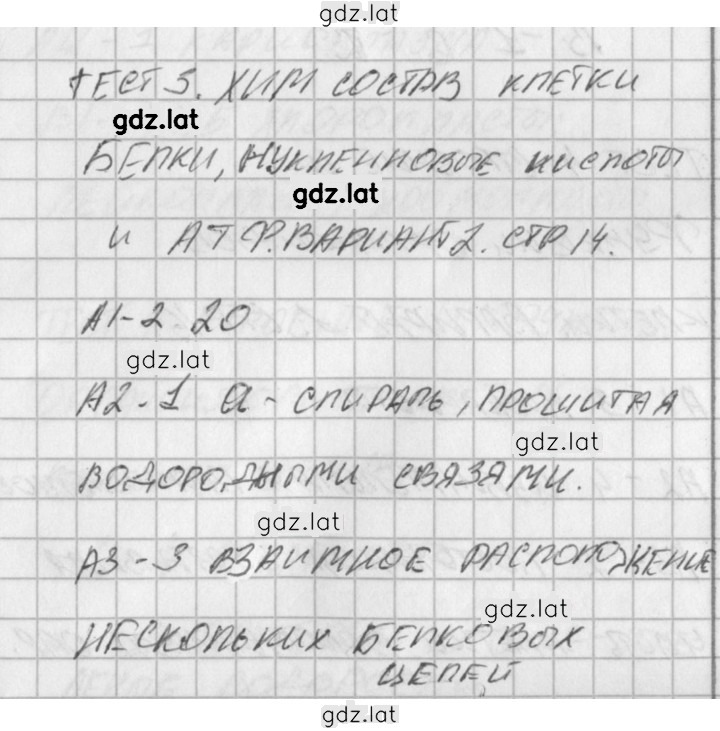 gdz.lat
ТЕСТ 5. ХИМ СОСТАВ КЛЕТКИ
gdz.lat
БЕЛКИ, НУКЛЕИНОВЫЕ КИСЛОТЫ
gdz.lat
И АТФ. ВАРИАНТ 2. СТР 14.
А1-2. 20
gdz.lat
А2-1 α - СПИРАЛЬ, ПРОШИТАЯ
gdz.lat
ВОДОРОДНЫМИ СВЯЗАМИ.
gdz.lat
А3-3 ВЗАИМНОЕ РАСПОЛОЖЕНИЕ
gdz.lat
НЕСКОЛЬКИХ БЕЛКОВЫХ
ЦЕПЕЙ
gdz.lat